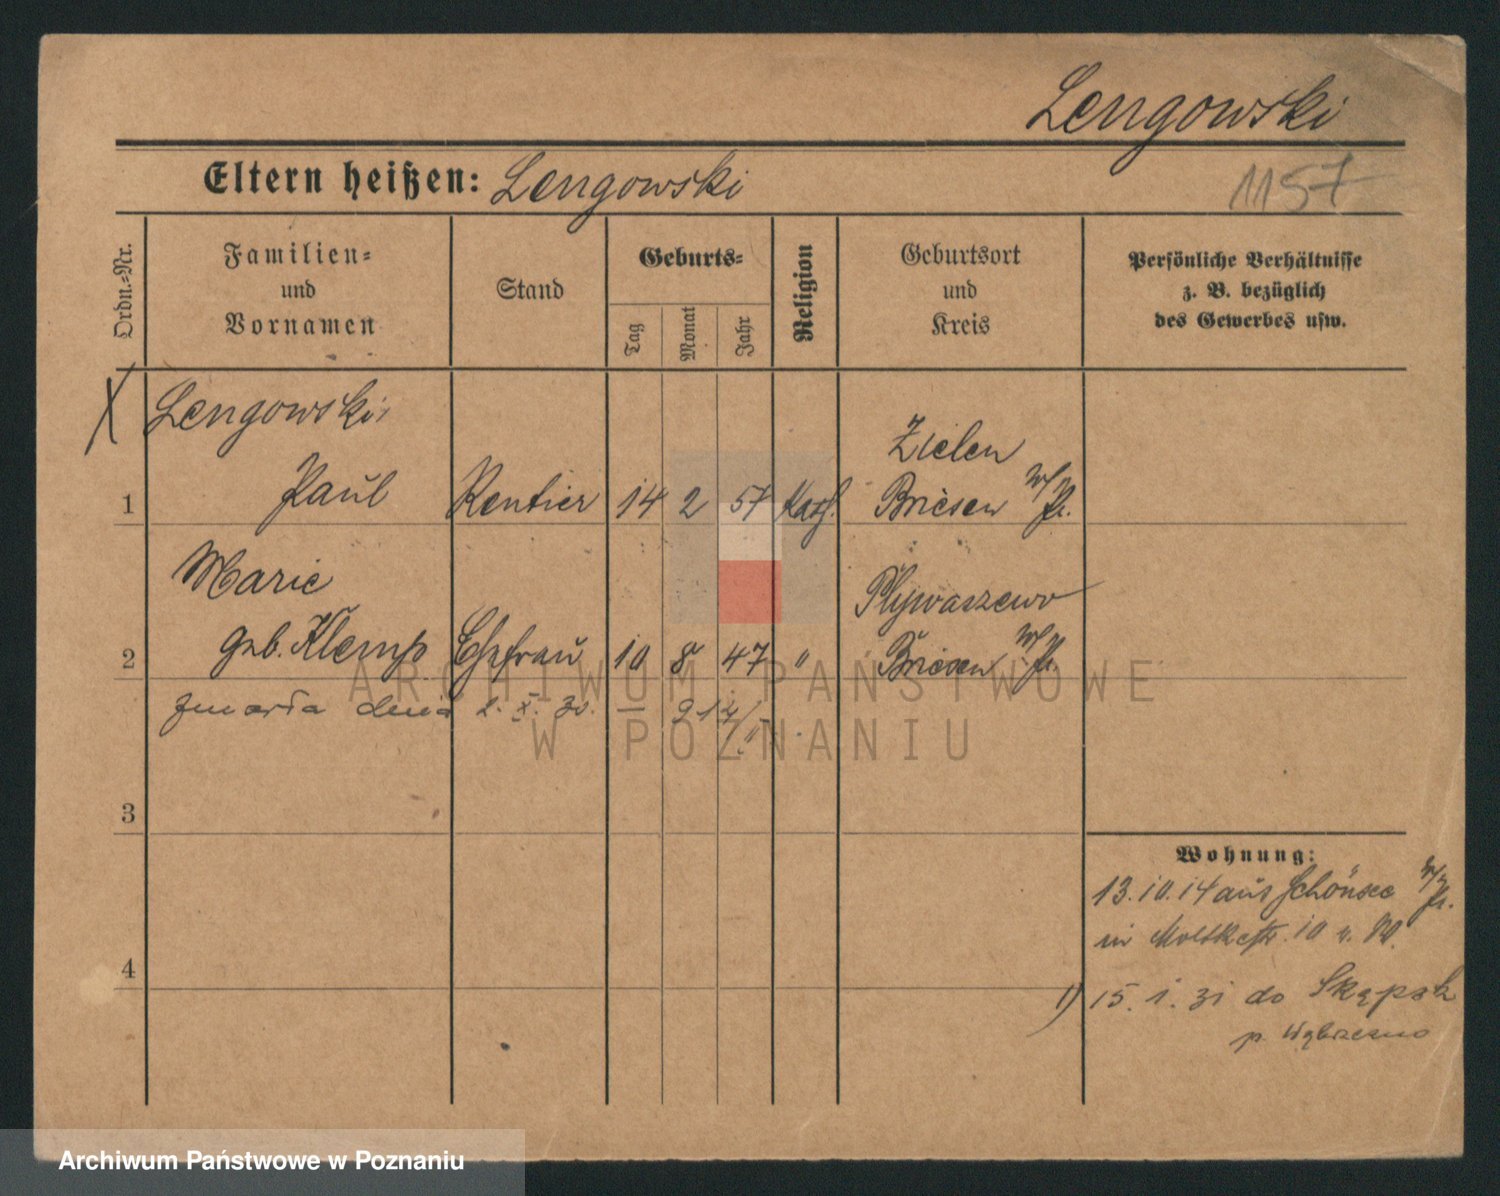 Lengowski
Eltern heißen: Lengowski
1157
Ordn.-Nr.
Familien-
und
Vornamen
Stand
Geburts-
Tag
Monat
Jahr
Religion
Geburtsort
und
Kreis
Persönliche Verhältnisse
z. B. bezüglich
des Gewerbes usw.
Lengowski
Zielen
1 Paul Rentier 14 2 57 Kath. Briesen W/Pr.
Marie Plywaszewo
2 geb. Klemp Ehefrau 10 8 47 " Briesen W/Pr.
zmarła dnia 2. X. 30. — 914/
3
4
Wohnung:
13.10.14 aus Schönsee W/Pr.
in Moltkestr. 10 b. W.
1) 15. 1. 31 do Skępsk
p. Wąbrzeźno
ARCHIWUM PAŃSTWOWE
W POZNANIU
Archiwum Państwowe w Poznaniu